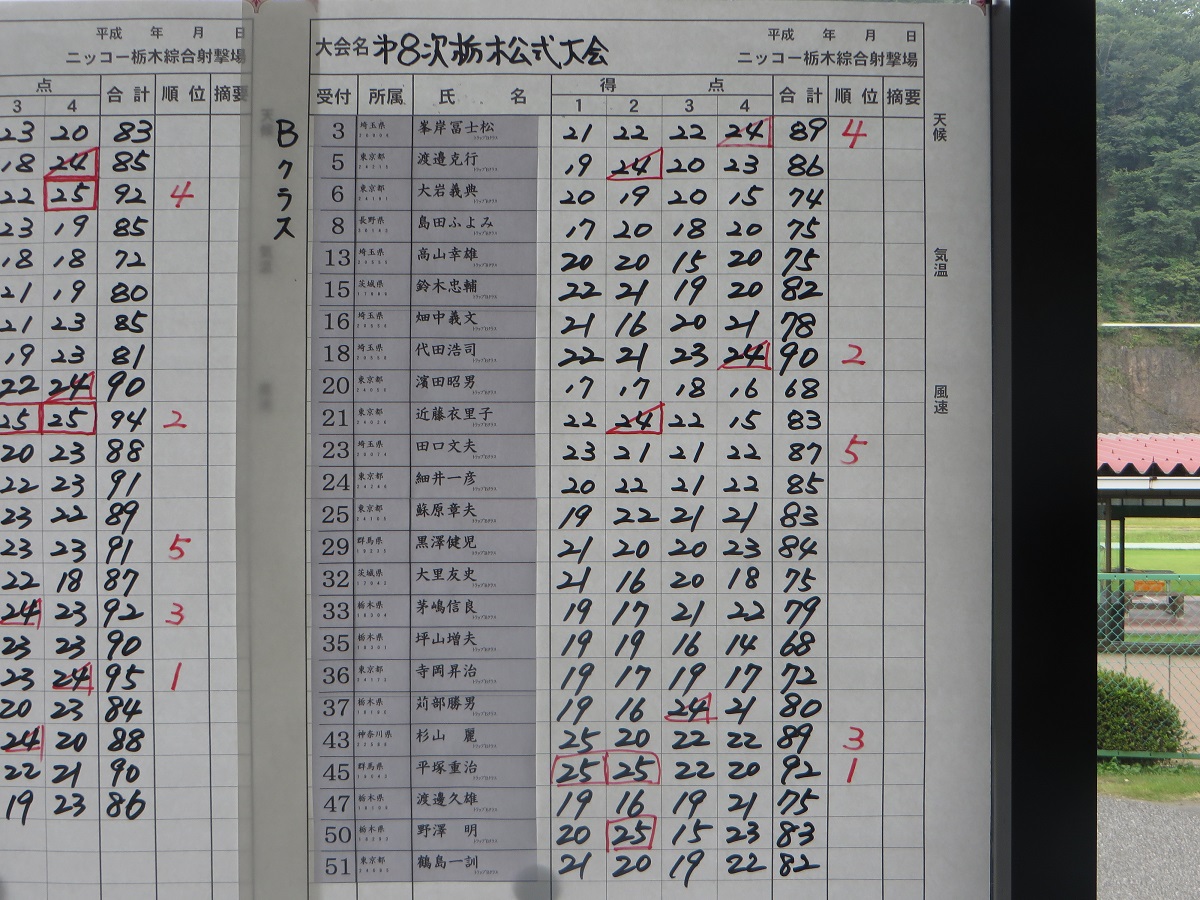 平成 年 月 日
ニッコー栃木綜合射撃場
点 合計 順位 摘要
3 4
23 20 83
18 24 85
22 25 92 4
23 19 85
18 18 72
21 19 80
21 23 85
19 23 81
22 24 90
25 25 94 2
20 23 88
22 23 91
23 22 89
23 23 91 5
22 18 87
24 23 92 3
23 23 90
23 24 95 1
20 23 84
24 20 88
22 21 90
19 23 86
Bクラス
大会名 オ8次栃木公式大会
平成 年 月 日
ニッコー栃木綜合射撃場
受付 所属 氏名 得点 合計 順位 摘要
1 2 3 4
3 埼玉県 峯岸冨士松 21 22 22 24 89 4
5 東京都 渡邉克行 19 24 20 23 86
6 東京都 大岩義典 20 19 20 15 74
8 長野県 島田ふよみ 17 20 18 20 75
13 埼玉県 高山幸雄 20 20 15 20 75
15 茨城県 鈴木忠輔 22 21 19 20 82
16 埼玉県 畑中義文 21 16 20 21 78
18 埼玉県 代田浩司 22 21 23 24 90 2
20 東京都 濱田昭男 17 17 18 16 68
21 東京都 近藤衣里子 22 24 22 15 83
23 埼玉県 田口文夫 23 21 21 22 87 5
24 東京都 細井一彦 20 22 21 22 85
25 東京都 蘇原章夫 19 22 21 21 83
29 群馬県 黒澤健児 21 20 20 23 84
32 茨城県 大里友史 21 16 20 18 75
33 栃木県 茅嶋信良 19 17 21 22 79
35 栃木県 坪山増夫 19 19 16 14 68
36 東京都 寺岡昇治 19 17 19 17 72
37 栃木県 苅部勝男 19 16 24 21 80
43 神奈川県 杉山 麗 25 20 22 22 89 3
45 群馬県 平塚重治 25 25 22 20 92 1
47 栃木県 渡邊久雄 19 16 19 21 75
50 栃木県 野澤 明 20 25 15 23 83
51 東京都 鶴島一訓 21 20 19 22 82
天候
気温
風速